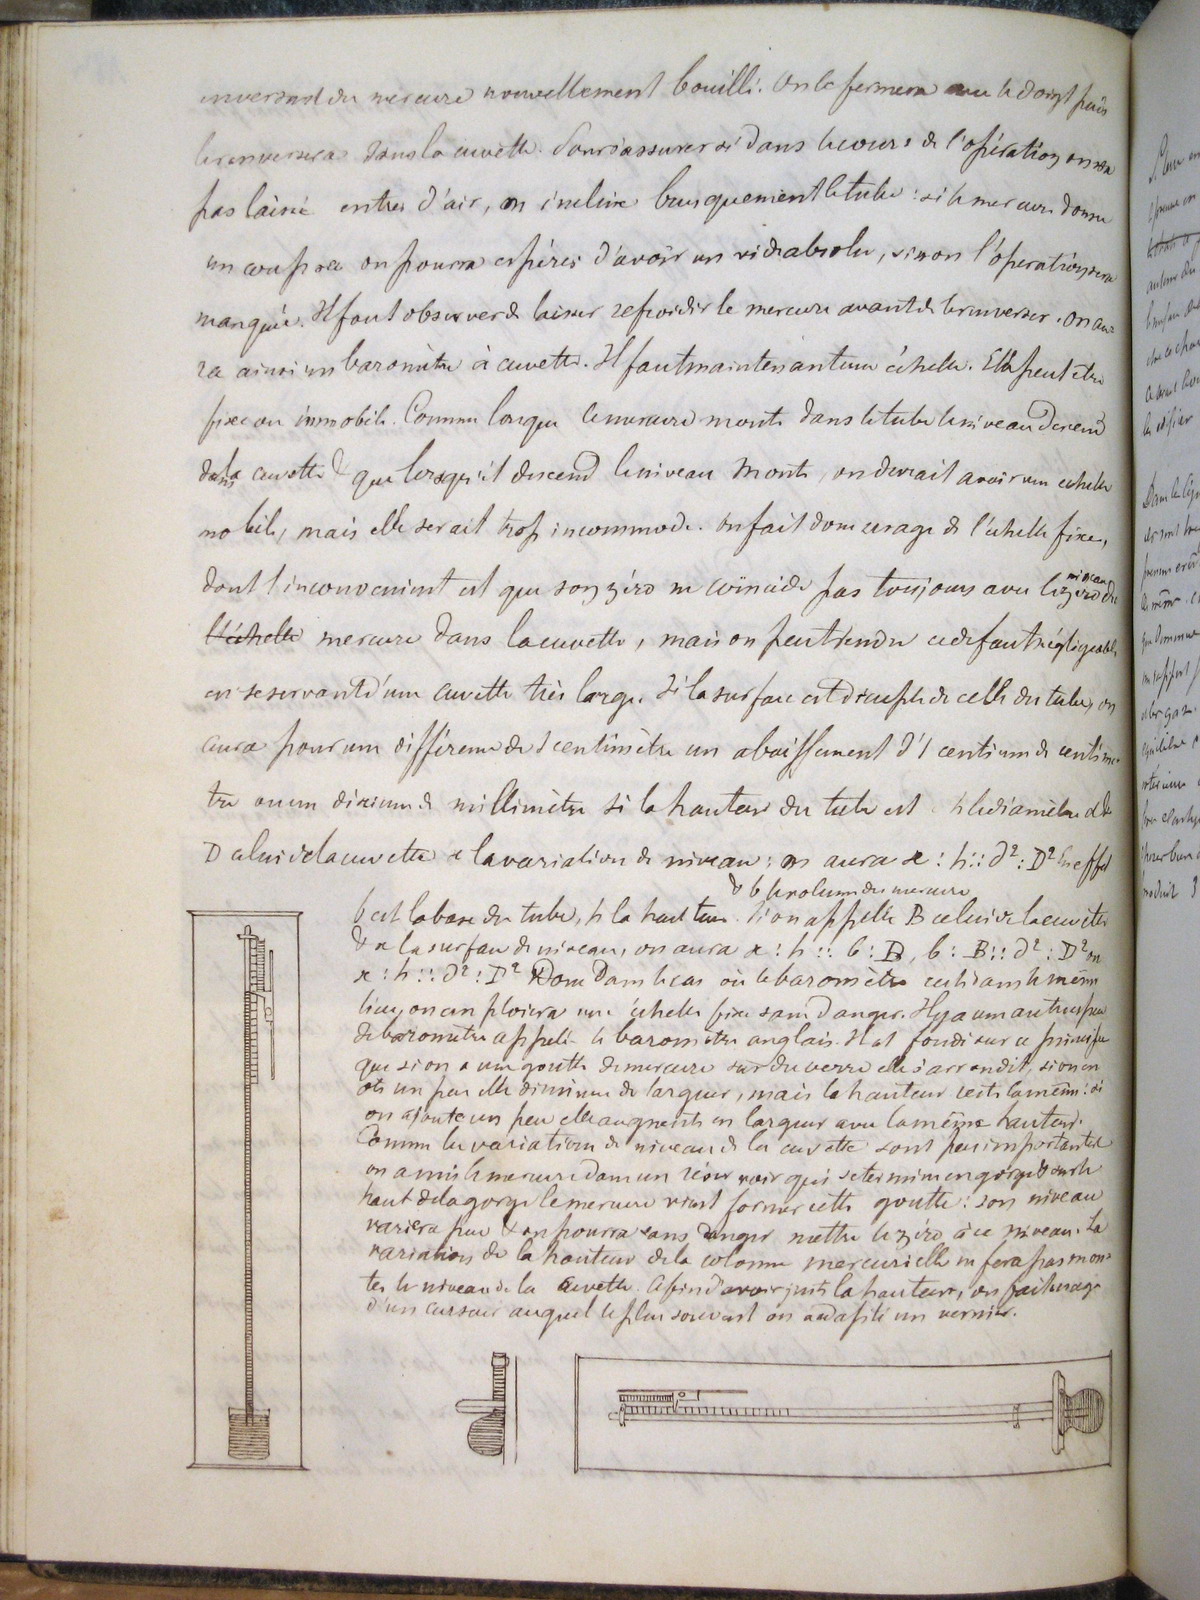 en versant du mercure nouvellement bouilli. On le fermera avec le doigt puis
le renversera dans la cuvette. Pour s'assurer si dans le cours de l'opération on n'a
pas laissé entrer d'air, on incline brusquement le tube : si le mercure donne
un coup sec on pourra espérer d'avoir un vide absolu, sinon l'opération sera
manquée. Il faut observer de laisser refroidir le mercure avant de le renverser. On au-
ra ainsi un baromètre à cuvette. Il faut maintenant une échelle. Elle peut être
fixe ou immobile. Comme lorsque le mercure monte dans le tube le niveau descend
dans la cuvette & que lorsqu'il descend le niveau monte, on devrait avoir une échelle
mobile, mais elle serait trop incommode. On fait donc usage de l'échelle fixe,
dont l'inconvénient est que son zéro ne coïncide pas toujours avec le zéro niveau du
l'échelle mercure dans la cuvette, mais on peut rendre ce défaut négligeable
en se servant d'une cuvette très large. Si la surface est de celle du tube, on
aura pour une différence de 1 centimètre un abaissement d'1 centième de centimè-
tre ou un dixième de millimètre si la hauteur du tube est h le diamètre d &
D celui de la cuvette x la variation de niveau : on aura x : h :: d² : D² En effet
& b le volume du mercure
b est la base du tube, h la hauteur. Si on appelle B celui de la cuvette
& x la surface de niveau, on aura x : h :: b : B, b : B :: d² : D² ou
x : h :: d² : D² Donc Dans le cas où le baromètre reste dans le même
lieu, on emploiera une échelle fixe sans danger. Il y a une autre espèce
de baromètre appelé le baromètre anglais. Il est fondé sur ce principe
que si on a une goutte de mercure sur du verre elle s'arrondit, si on en
ôte un peu elle diminue de largeur, mais la hauteur reste la même : si
on ajoute un peu elle augmente en largeur avec la même hauteur.
Comme les variations de niveau de la cuvette sont peu importantes
on a mis le mercure dans un réservoir qui se termine en gorge & sur le
haut de la gorge le mercure vient former cette goutte : son niveau
variera peu & on pourra sans danger mettre le zéro à ce niveau. La
variation de la hauteur de la colonne mercurielle ne fera pas mon-
ter le niveau de la cuvette. Afin d'avoir juste la hauteur, on fait usage
d'un curseur auquel le plus souvent on adapte un vernier.